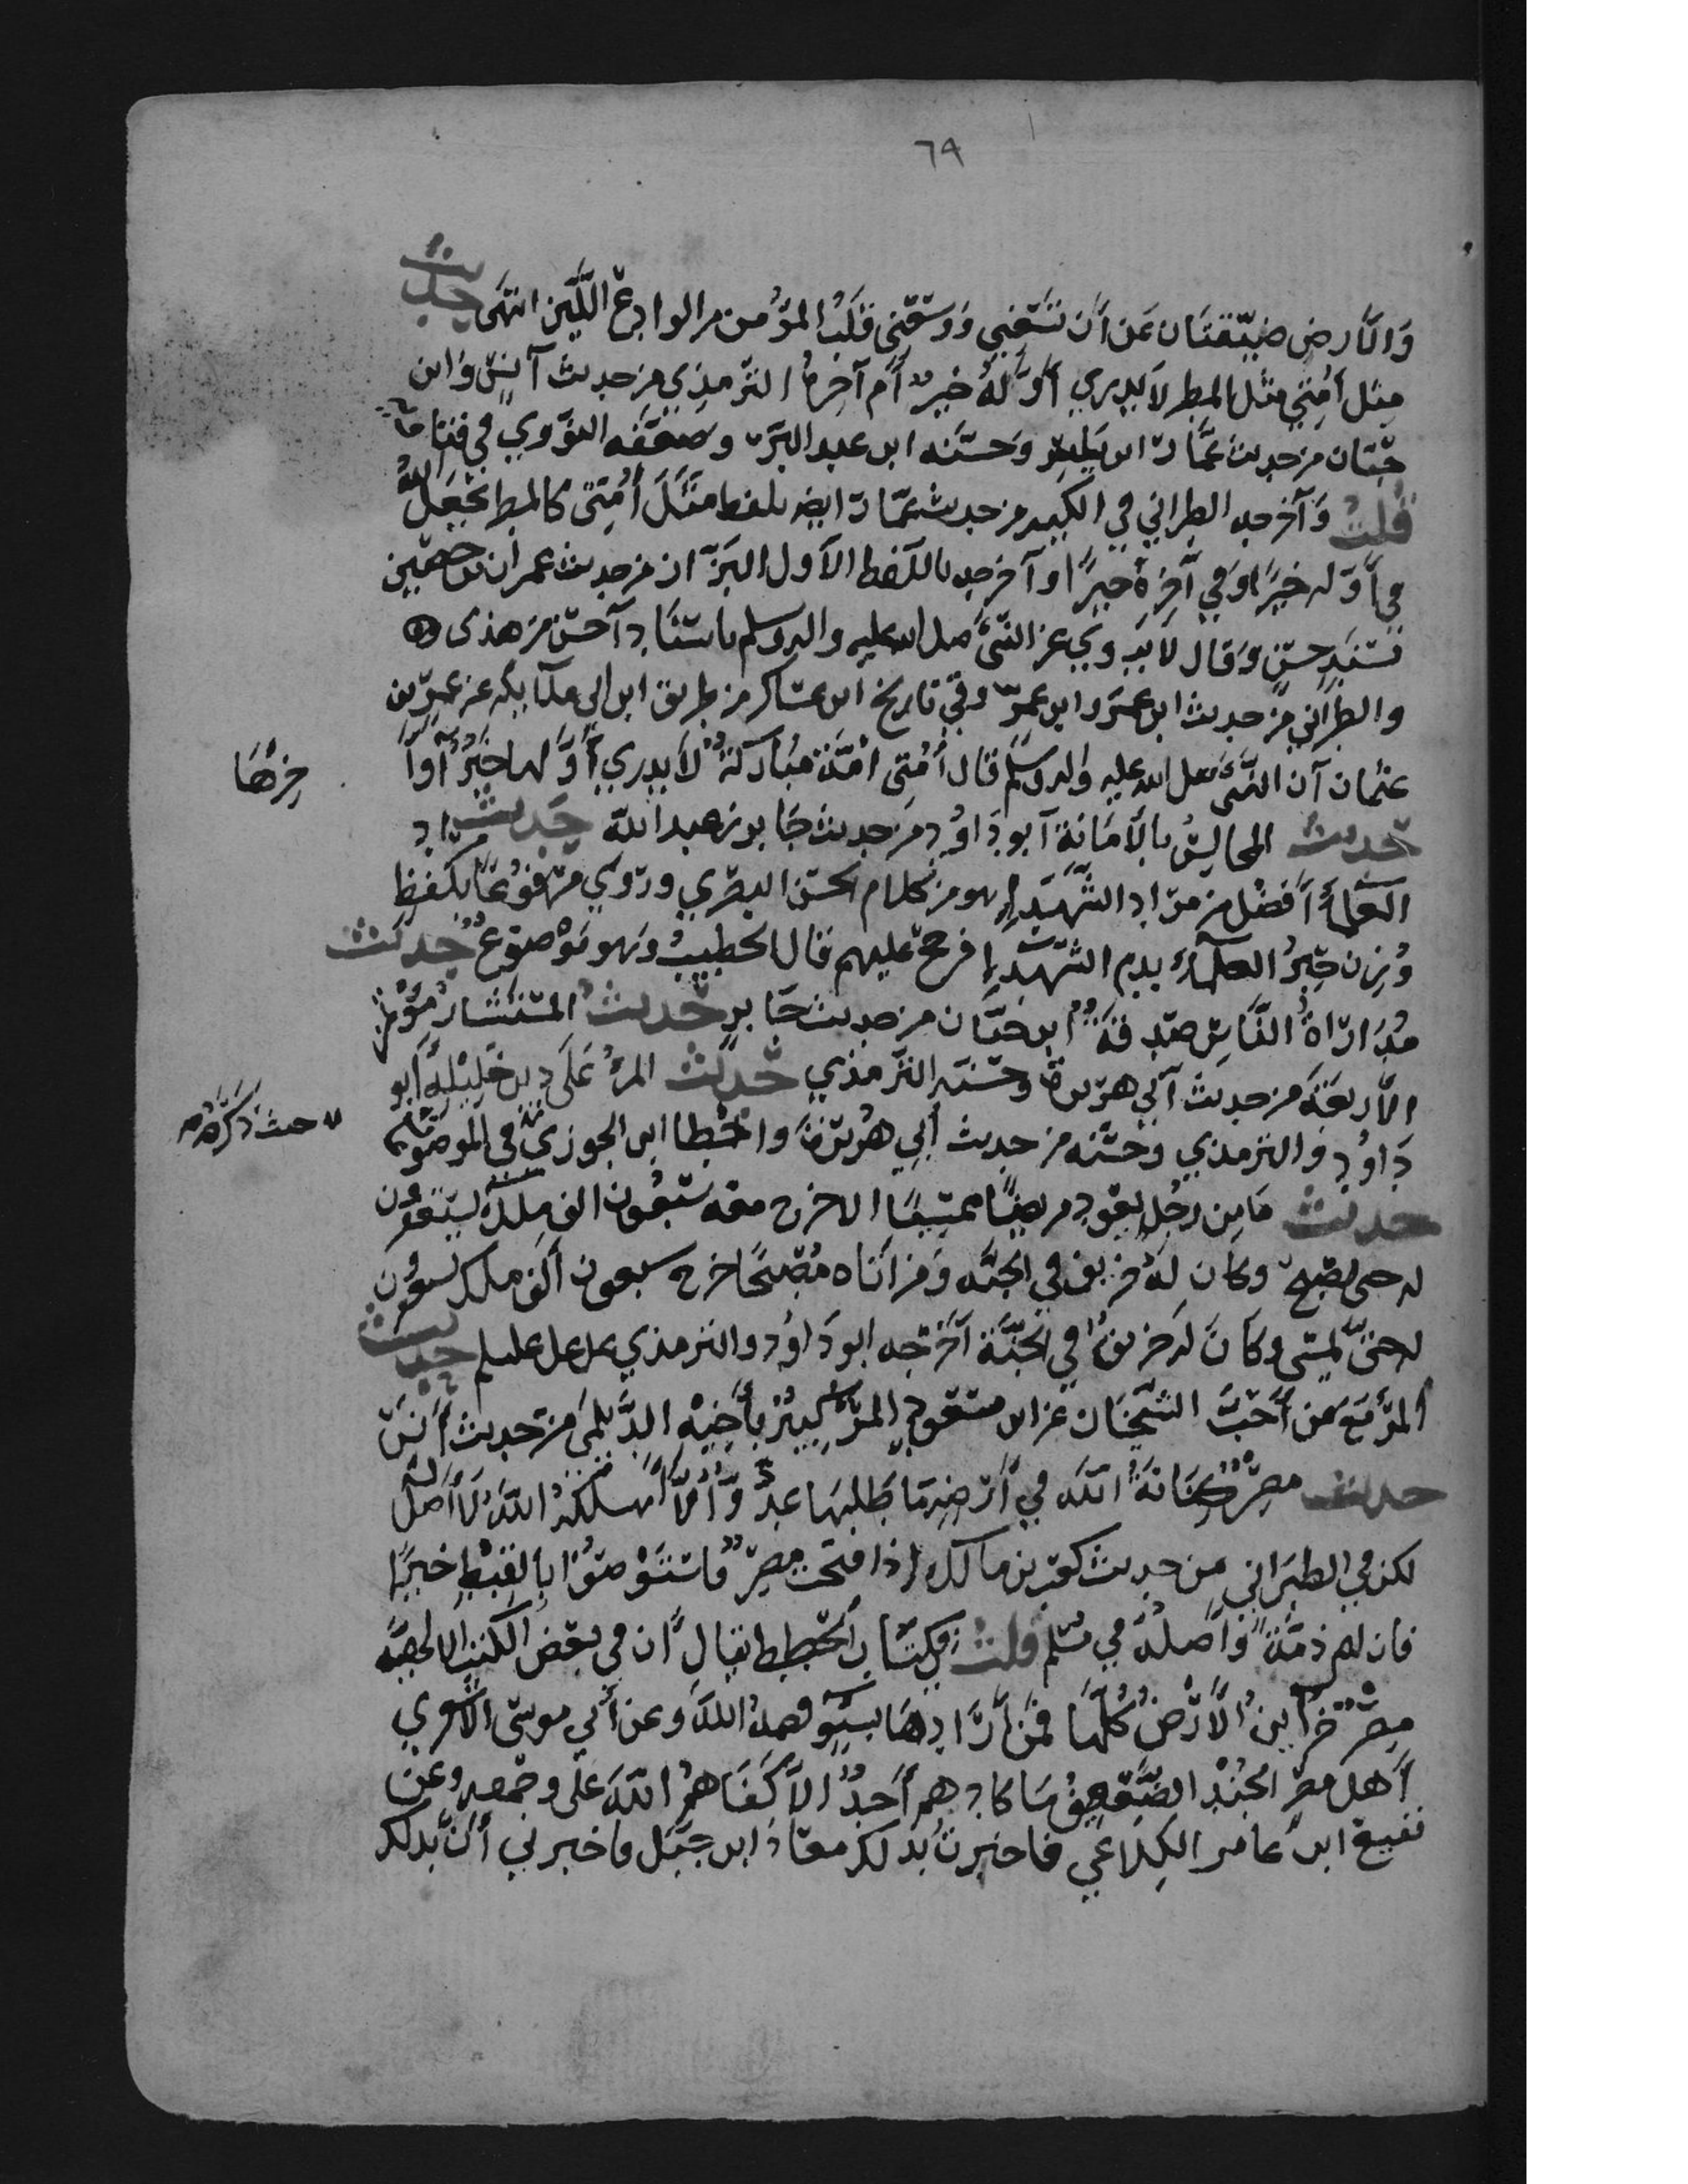 ٦٩
وَالأَرض ضيّقتَان عَن أَن تسَعَني وَوسعَني قلبُ المؤمن الوادع اللّين انتهَى حديث
مثل أمتي مثل المطر لا يدري أوّلهُ خير أم آخره الترمذي من حديث أنس وابن
حبّان من حديث عمّار بن ياسر وحسّنه ابن عبد البرّ وضعّفه النوَوي في فتاويه
قلتُ وَأخرجه الطبراني في الكبير من حديث عمّار ايضا بلفظ مثَل أُمّتي كالمطر يجعَل اللهُ
في أوّله خيرًا وَفي آخره خيرًا وأخرجه باللّفظ الأول البزّار من حديث عمران بن حصَين
بسنَدٍ حسَن وَقال لا يروى عن النّبيّ صلى الله عليه واله وسلم باسنَاد أحسَن من هذى
والطبراني من حديث ابن عمَر وابن عمرو وفي تاريخ ابن عسَاكر من طريق ابن ابي مليكة عن عمرو بن
عثمان أن النّبيّ صلى الله عليه واله وسلم قال أُمّتي أمّة مبُاركةٌ لا يدري أوّلها خيرٌ أو ا
خرهَا
حديث المجالسُ بالأمَانَة أبو دَاوُد من حديث جَابر بن عبد الله حَديث مداد
العلماءُ أفضل من مداد الشّهَداء هو من كلام الحسَن البصري وروي مرفوعًا بلفظ
وُزن حِبرُ العلماء بدم الشّهدَاء فرجح عليهم قال الخطيبُ وَهو موْضوع حديث
مُدَاراةُ النّاس صدقَةٌ ابن حبّان من حديث جَابر حديث المستشار مؤتمن
الأربعَة من حديث أبي هريرة وحسّنه الترمذي حديث المرءُ عَلى دين خَليله أبو
دَاوُد والترمذي وحسّنه من حديث أبي هُريرة وأخطا ابن الجوزي في الموضوعات
حيث ذكرَهُ
حديث مَا من رجُل يعُود مريضًا ممسيًا الا خرج معه سَبعُون الف ملك يستغفرون
له حتى يصبح وكان لهُ خريف في الجنّه وَمن أتاه مُصبحًا خرج سبعون ألف ملك يستغفرون
له حتّى يمسى وكانَ له خريفٌ في الجنّة أخرَجه ابو دَاوُد والترمذي عن علي حديث
المرءُ مَع مَن أحَبّ الشّيخَان عن ابن مسعُود المرءُ كثيرٌ بأخيه الدّيلمي من حديث أنَس
حديث مصرُ كنَانَةُ اللّه في أرضه مَا طَلبهَا عدوٌّ الاّ أهلكهُ اللّهُ لَا أصل له
لكن في الطبراني من حديث كعب بن مالك إذا فتحت مصرُ فاستَوْصوْا بالقبْط خيرًا
فان لهم ذمّةً وأصلُه في مسلم قلتُ في كتَاب الخطط يقال ان في بعض الكتب الالهيّه
مصرُ خزاينُ الأرْض كلّهَا فمن أرادهَا بسُوء قصمهُ اللّه وعن أبي موسى الأشعري
أهل مصر الجُندُ الضّعيفُ مَا كادهم أحَدٌ الا كفَاهمُ اللّهُ
ابن عامر الكِلاعي فاخبرتُ بذلك معاذ ابن جبَل فاخبرني أن بذلك